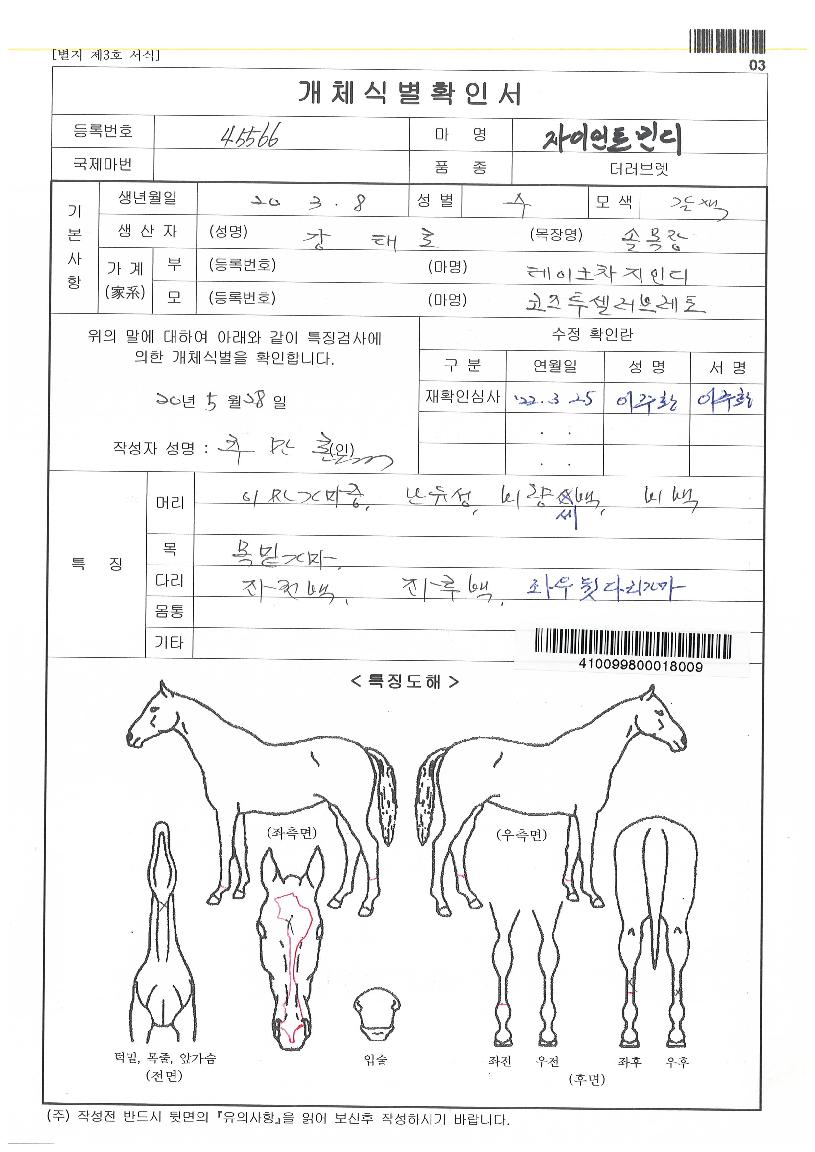 [별지 제3호 서식]
03
개체식별확인서
등록번호 45566 마 명 자이언트민디
국제마번 품 종 더러브렛
기본사항
생년월일 20 3 . 8 성 별 수 모 색 갈색
생 산 자 (성명) 강 태 호 (목장명) 솔목장
가 계 (家系) 부 (등록번호) (마명) 테이크차지인디
모 (등록번호) (마명)
위의 말에 대하여 아래와 같이 특징검사에
의한 개체식별을 확인합니다.
20년 5월 28일
작성자 성명 : (인)
수정 확인란
구 분 연월일 성 명 서 명
재확인심사 '22. 3 25
. .
. .
특 징
머리 비백
목 목밑가마.
다리 좌전백, 좌후백, 좌우뒷다리가마
몸통
기타
410099800018009
< 특징도해 >
(좌측면) (우측면)
턱밑, 목줄, 앞가슴
(전면)
입술
좌전 우전 좌후 우후
(후면)
(주) 작성전 반드시 뒷면의 『유의사항』을 읽어 보신후 작성하시기 바랍니다.